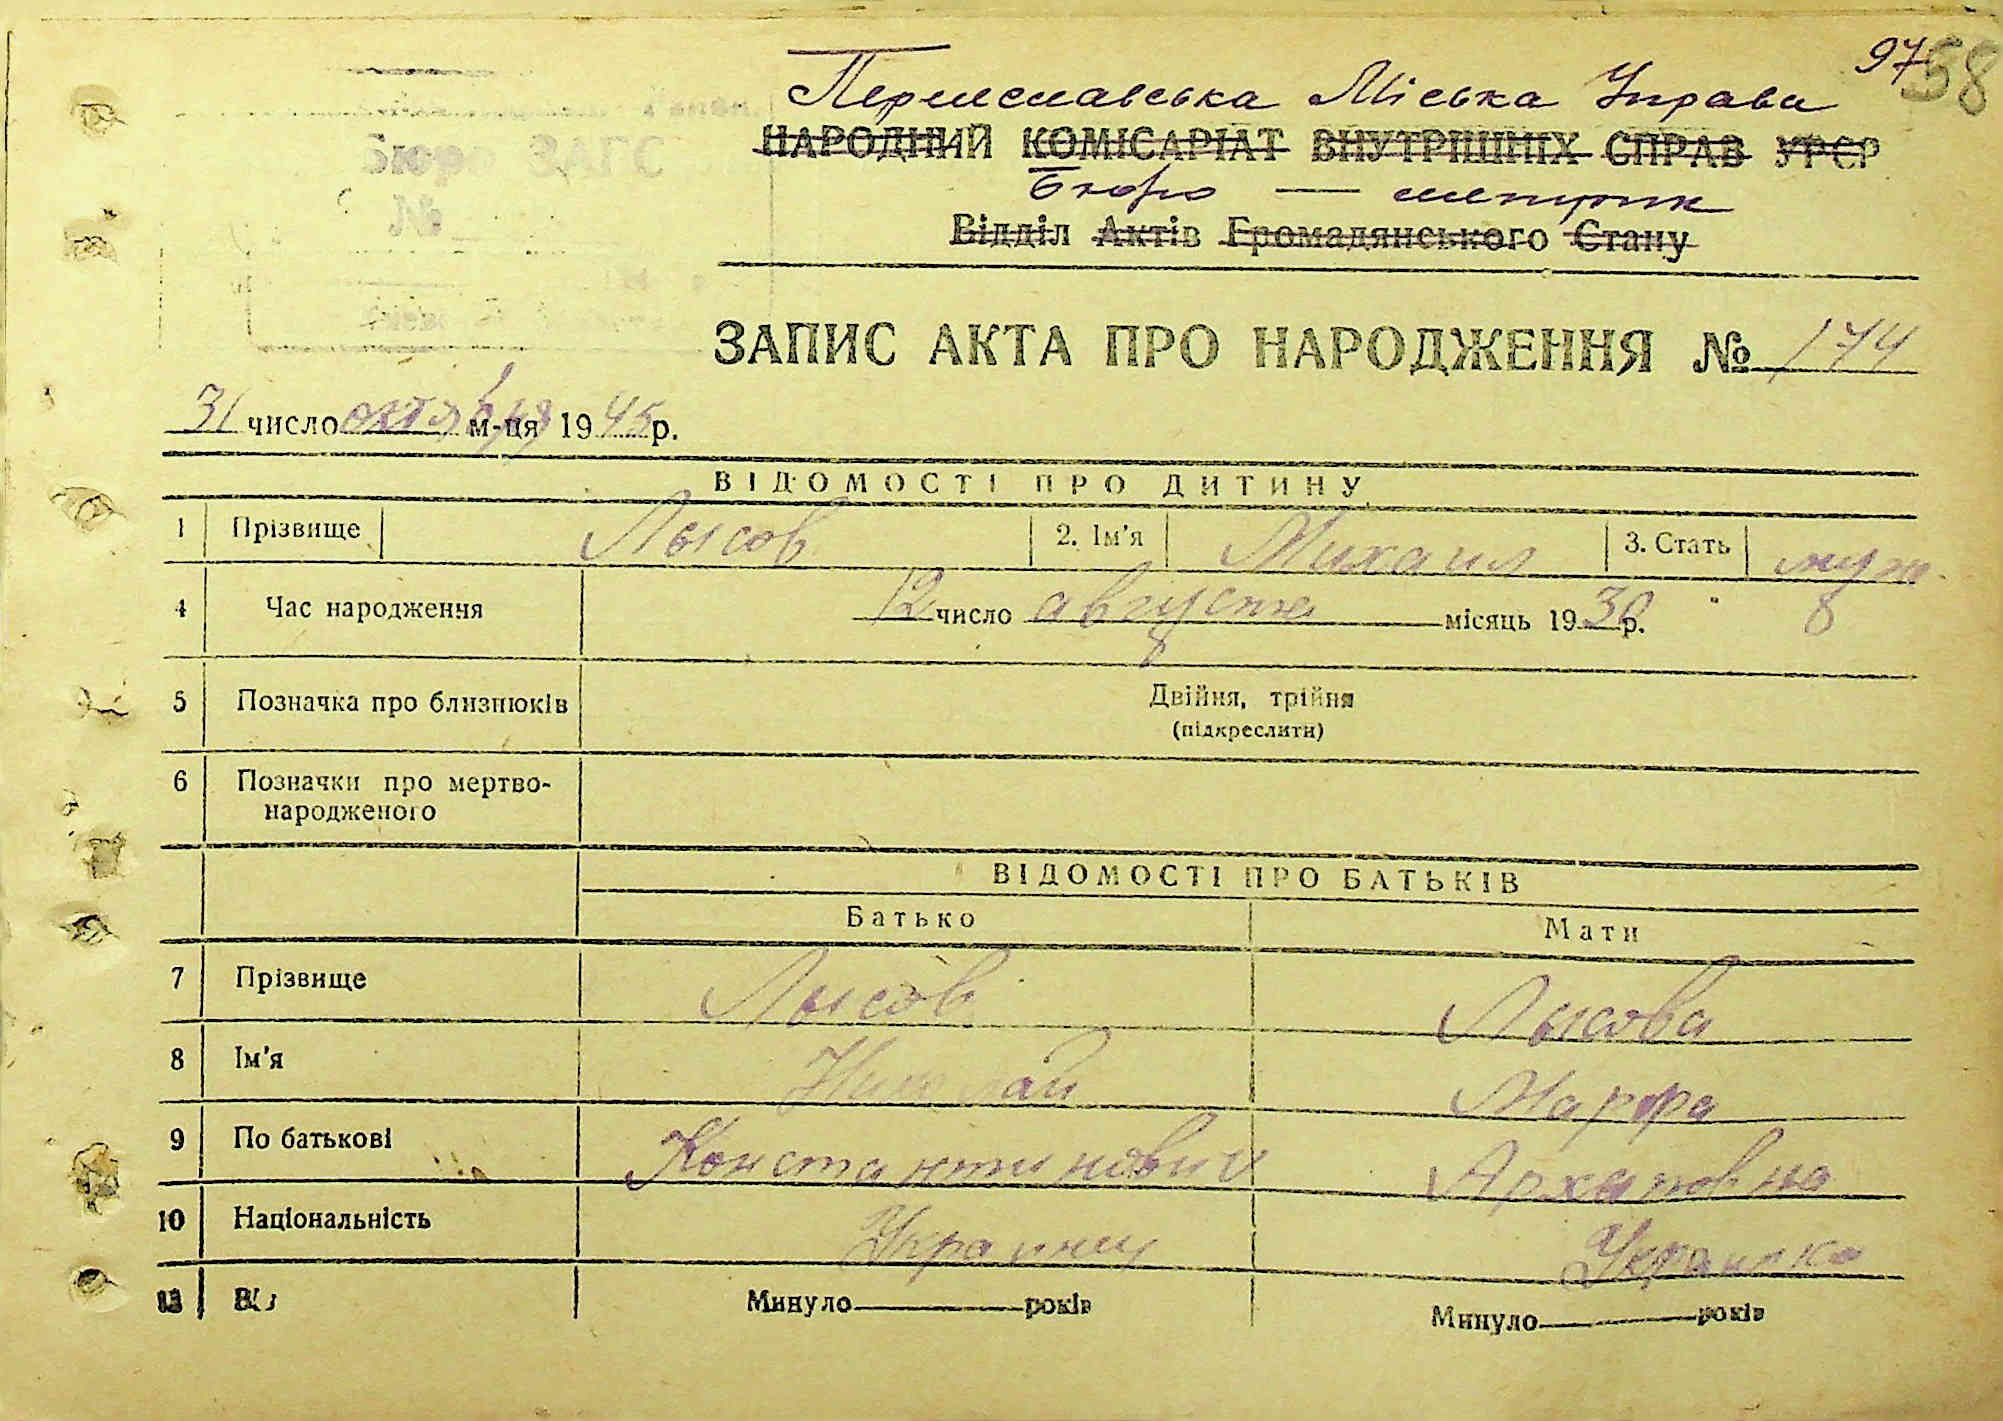 97 58
Переяславська Міська Управа
НАРОДНИЙ КОМІСАРІАТ ВНУТРІШНІХ СПРАВ УРСР
Бюро — метрик
Відділ Актів Громадянського Стану
ЗАПИС АКТА ПРО НАРОДЖЕННЯ № 174
31 число октября м-ця 1945 р.
ВІДОМОСТІ ПРО ДИТИНУ
1 Прізвище Лысов 2. Ім'я Михаил 3. Стать муж
4 Час народження 12 число августа місяць 1930 р.
5 Позначка про близнюків Двійня, трійня
(підкреслити)
6 Позначки про мертво-
народженого
ВІДОМОСТІ ПРО БАТЬКІВ
Батько Мати
7 Прізвище Лысов Лысова
8 Ім'я Николай Марфа
9 По батькові Константинович Архиповна
10 Національність Украинец Украинка
Минуло років Минуло років